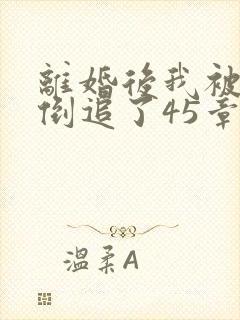 離婚後我被
倒追了45章
溫柔A